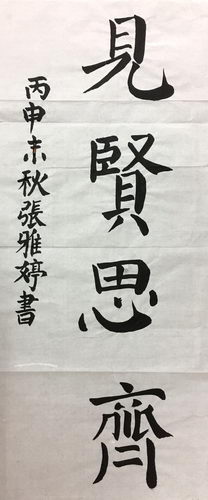 見賢思齊
丙申末秋張雅婷書